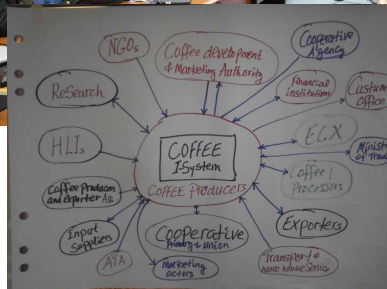 NGOs
Coffee development
& Marketing Authority
Cooperative
Agency
Financial
institution
Custom
office
ReSearch
HLIs
COFFEE
ISystem
COFFEE Producers
ECX
Ministr
of Trad
Coffee
Processors
Coffee Producers
and exporter Ass
Exporters
Input
suppliers
ATA
Cooperative
Primary & union
Marketing
actors
Transport &
ware house Service